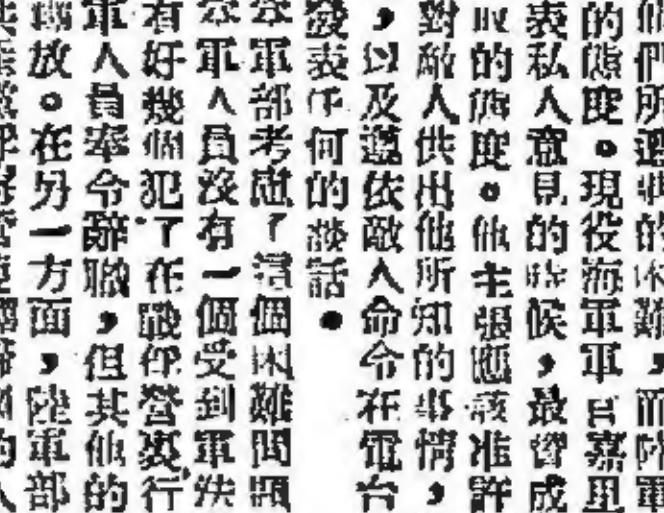 他們所遭遇的困難,而陸軍
的態度。現役海軍軍官嘉里
表私人意見的時候,最贊成
取的態度。他主張應該准許
對敵人供出他所知的事情,
,以及遵依敵人命令在電台
發表任何的談話。
本軍部考慮了這個困難問題
本軍人員沒有一個受到軍法
有好幾個犯了在戰俘營裏行
軍人員奉令辭職,但其他的
放。在另一方面,陸軍部